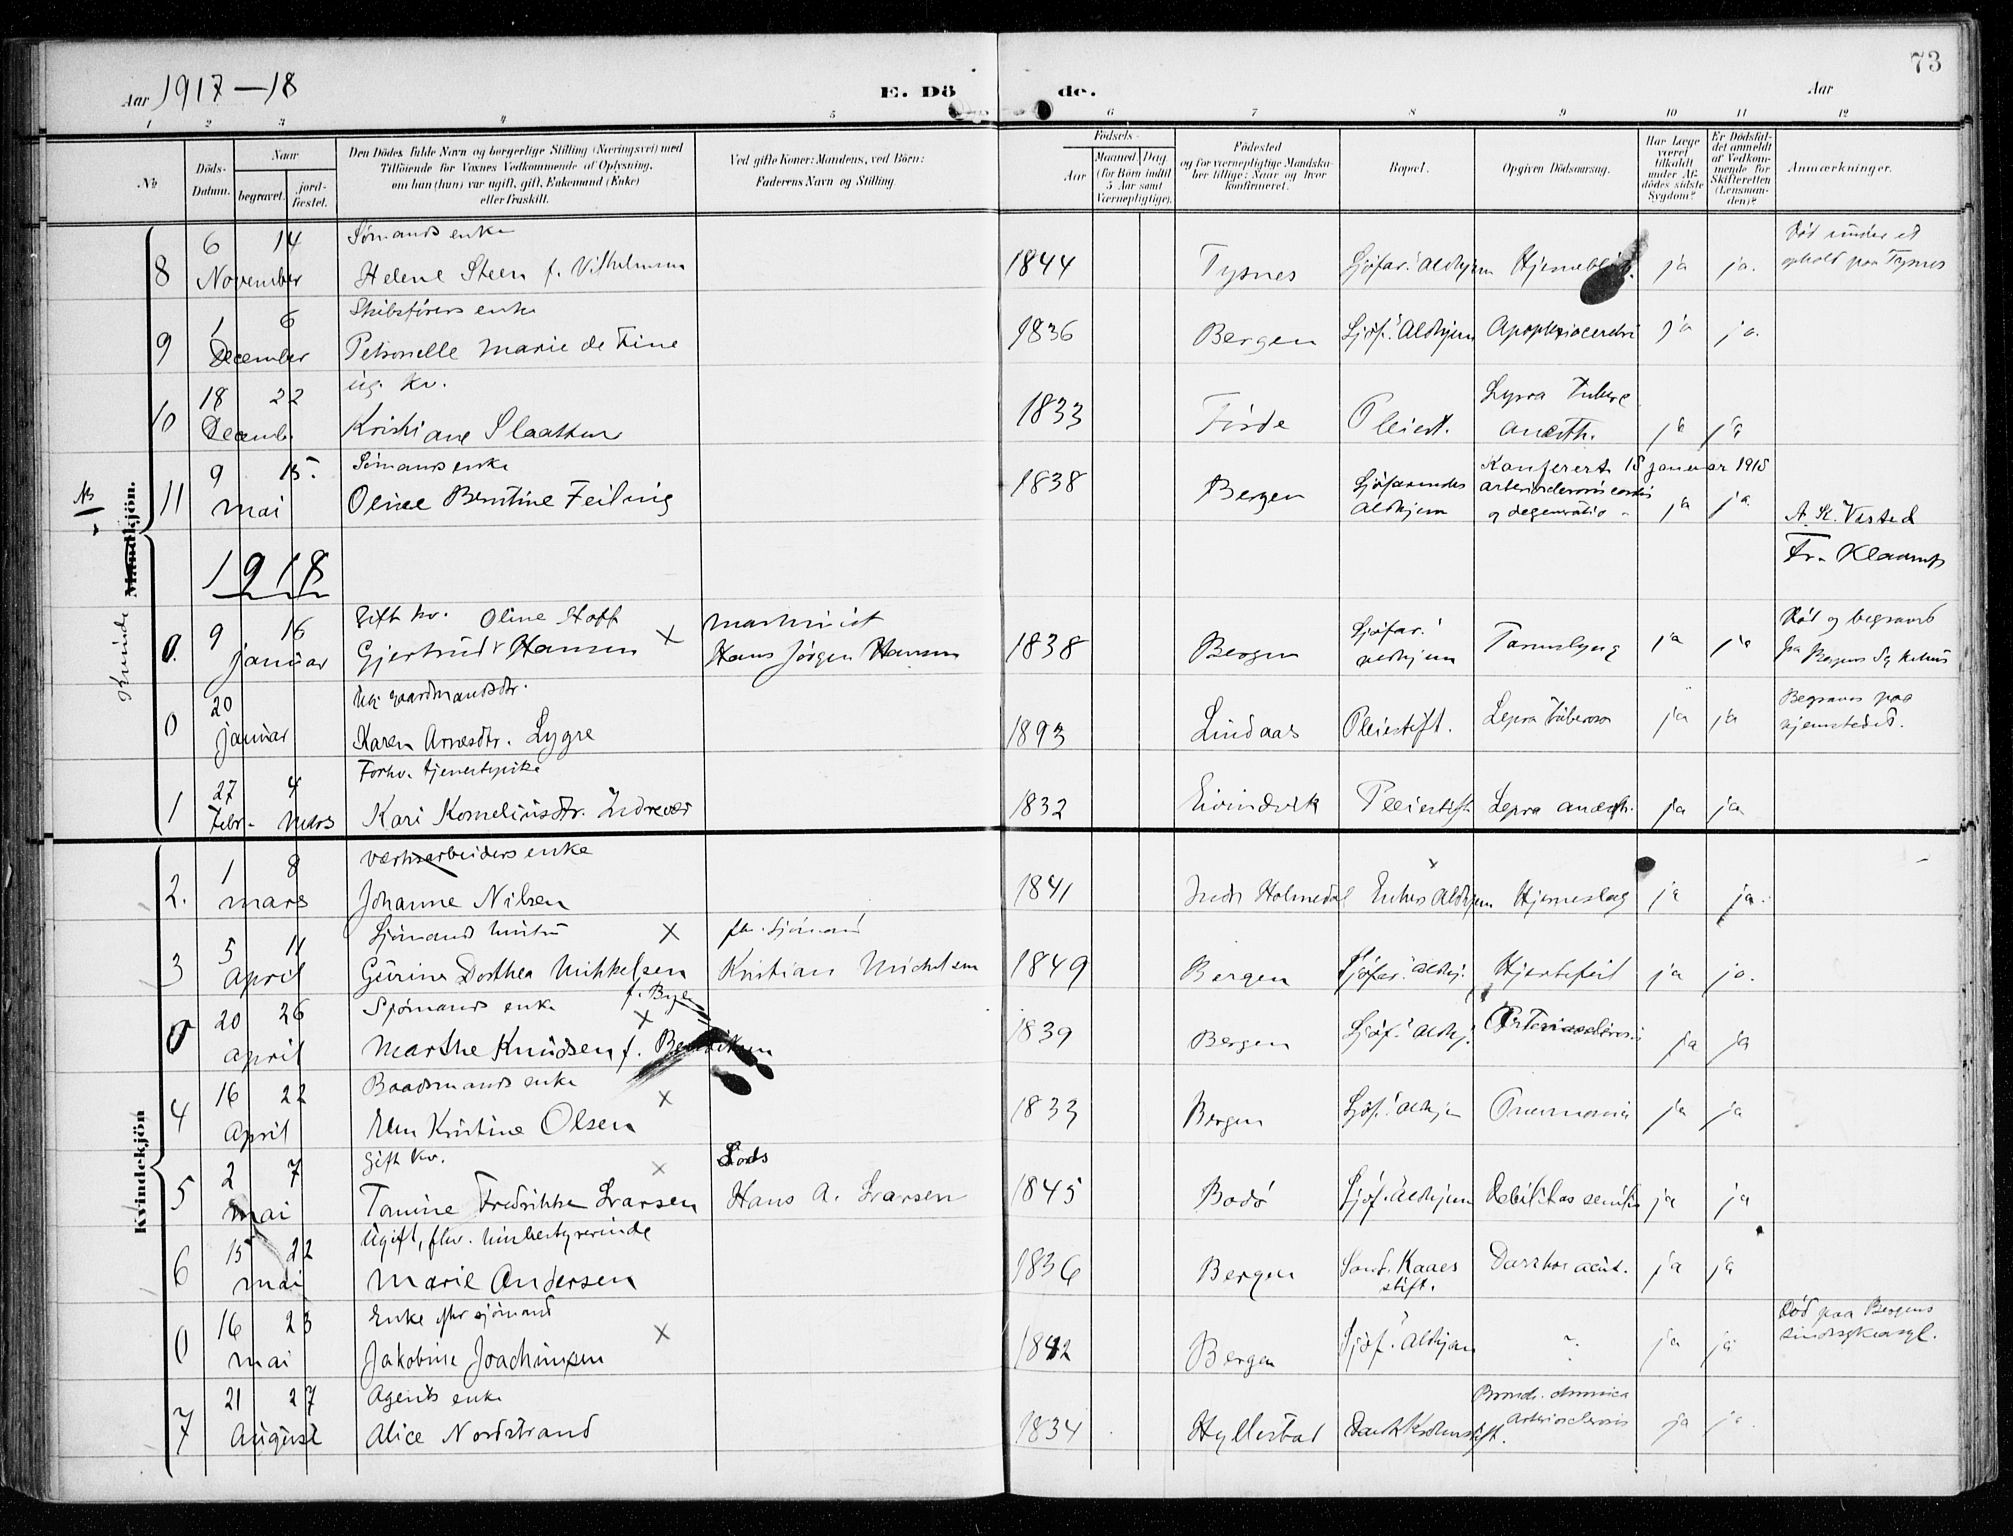 73
Aar 1917—18
E. Dö de.
Aar
1 2 3 4 5 6 7 8 9 10 11 12
№
Döds-Datum.
Naar
begravet. jord-fæstet.
Den Dödes fulde Navn og borgerlige Stilling (Næringsvei) med
Tilföiende for Voxnes Vedkommende af Oplysning,
om han (hun) var ugift, gift, Enkemand (Enke)
eller fraskilt.
Ved gifte Koner: Mandens, ved Börn:
Faderens Navn og Stilling
Födsels-
Aar
Maaned Dag
(for Börn indtil
5 Aar samt
Værnepligtige).
Födested
og for værnepligtige Mandska-
ber tillige: Naar og hvor
konfirmeret.
Bopæl.
Opgiven Dödsaarsag.
Har Læge
været
tilkaldt
under Af-
dödes sidste
Sygdom?
Er Dödsfal-
det anmeldt
af Vedkom-
mende for
Skifteretten
(Lensman-
den)?
Anmærkninger.
Kvinde Mandkjön.
8 6 14 November Sømands enke
Helene Steen f. Vilhelmsen 1844 Tysnes Sjøfar. Aldhjem ja ja. Død under et
ophold paa Tysnes
9 1 6 December Skibsførers enke
Petronelle Marie de Fine 1836 Bergen Sjøf. Aldhjem ja ja.
10 18 22 Decemb. ug. kv.
Kristiane Slaatten 1833 Førde Pleiest. Lepra Tuberc
anæsth. ja ja
11 9 15. mai Sømands enke
Oline Berntine Feiling 1838 Bergen Sjøfarendes
Aldhjem ja ja.
Konfereret 15 januar 1918
1918
0. 9 16 januar Gift kv. Oline Hoff
Gjertrud Hansen x maskinist
Hans Jørgen Hansen 1838 Bergen Sjøfar.
aldhjem Tarmslyng ja ja Død og begravet
fra Bergens Sykehus
0 20 januar Ug. gaardmandsdtr.
Karen Arnesdtr. Lygre 1893 Lindaas Pleiestift. Lepra tuberosa ja ja Begraves paa
hjemstedet.
1 27 Febr. 4 Mars Forhv. tjenestepike
Kari Korneliusdtr. Indrevær 1832 Eivindvik Pleiestift Lepra anæsth. ja ja
Kvindekjön
2. 1 8 mars Værksarbeiders enke
Johanne Nilsen 1841 Indr Holmedal Enkers Aldhjem Hjerneslag ja ja.
3 5 11 April Sjømands hustru
Gurine Dorthea Mikkelsen x fhv. sjømand
Kristian Michelsen 1849 Bergen Sjøfar. aldhj. Hjertefeil ja ja.
0 20 26 april Sjømands enke
Marthe Knudsen f. x 1839 Bergen Sjøf. Aldhj. Arteriosclerosis ja ja
4 16 22 April Baadsmands enke
Elen Kristine Olsen x 1833 Bergen Sjøf. Aldhjem Pneumonia ja ja
5 2 7 mai Gift kv.
Tomine Fredrikke Larsen x Lods
Hans A. Larsen 1845 Bodø Sjøf. Aldhjem Debilitas senilis ja ja
6 15 22 mai Ugift, fhv.
Marie Andersen 1836 Bergen
stift. Diarrhoe acut. ja ja
0 16 23 mai Enke efter sjømand
Jakobine Joachimsen x 1842 Bergen Sjøf. Aldhjem ? ja ja Død paa Bergens
sindssykeasyl.
7 21 27 August Agents enke
Alice Nordstrand 1834 Hyllestad Bronch. chronica
Arteriosclerosis ja ja.